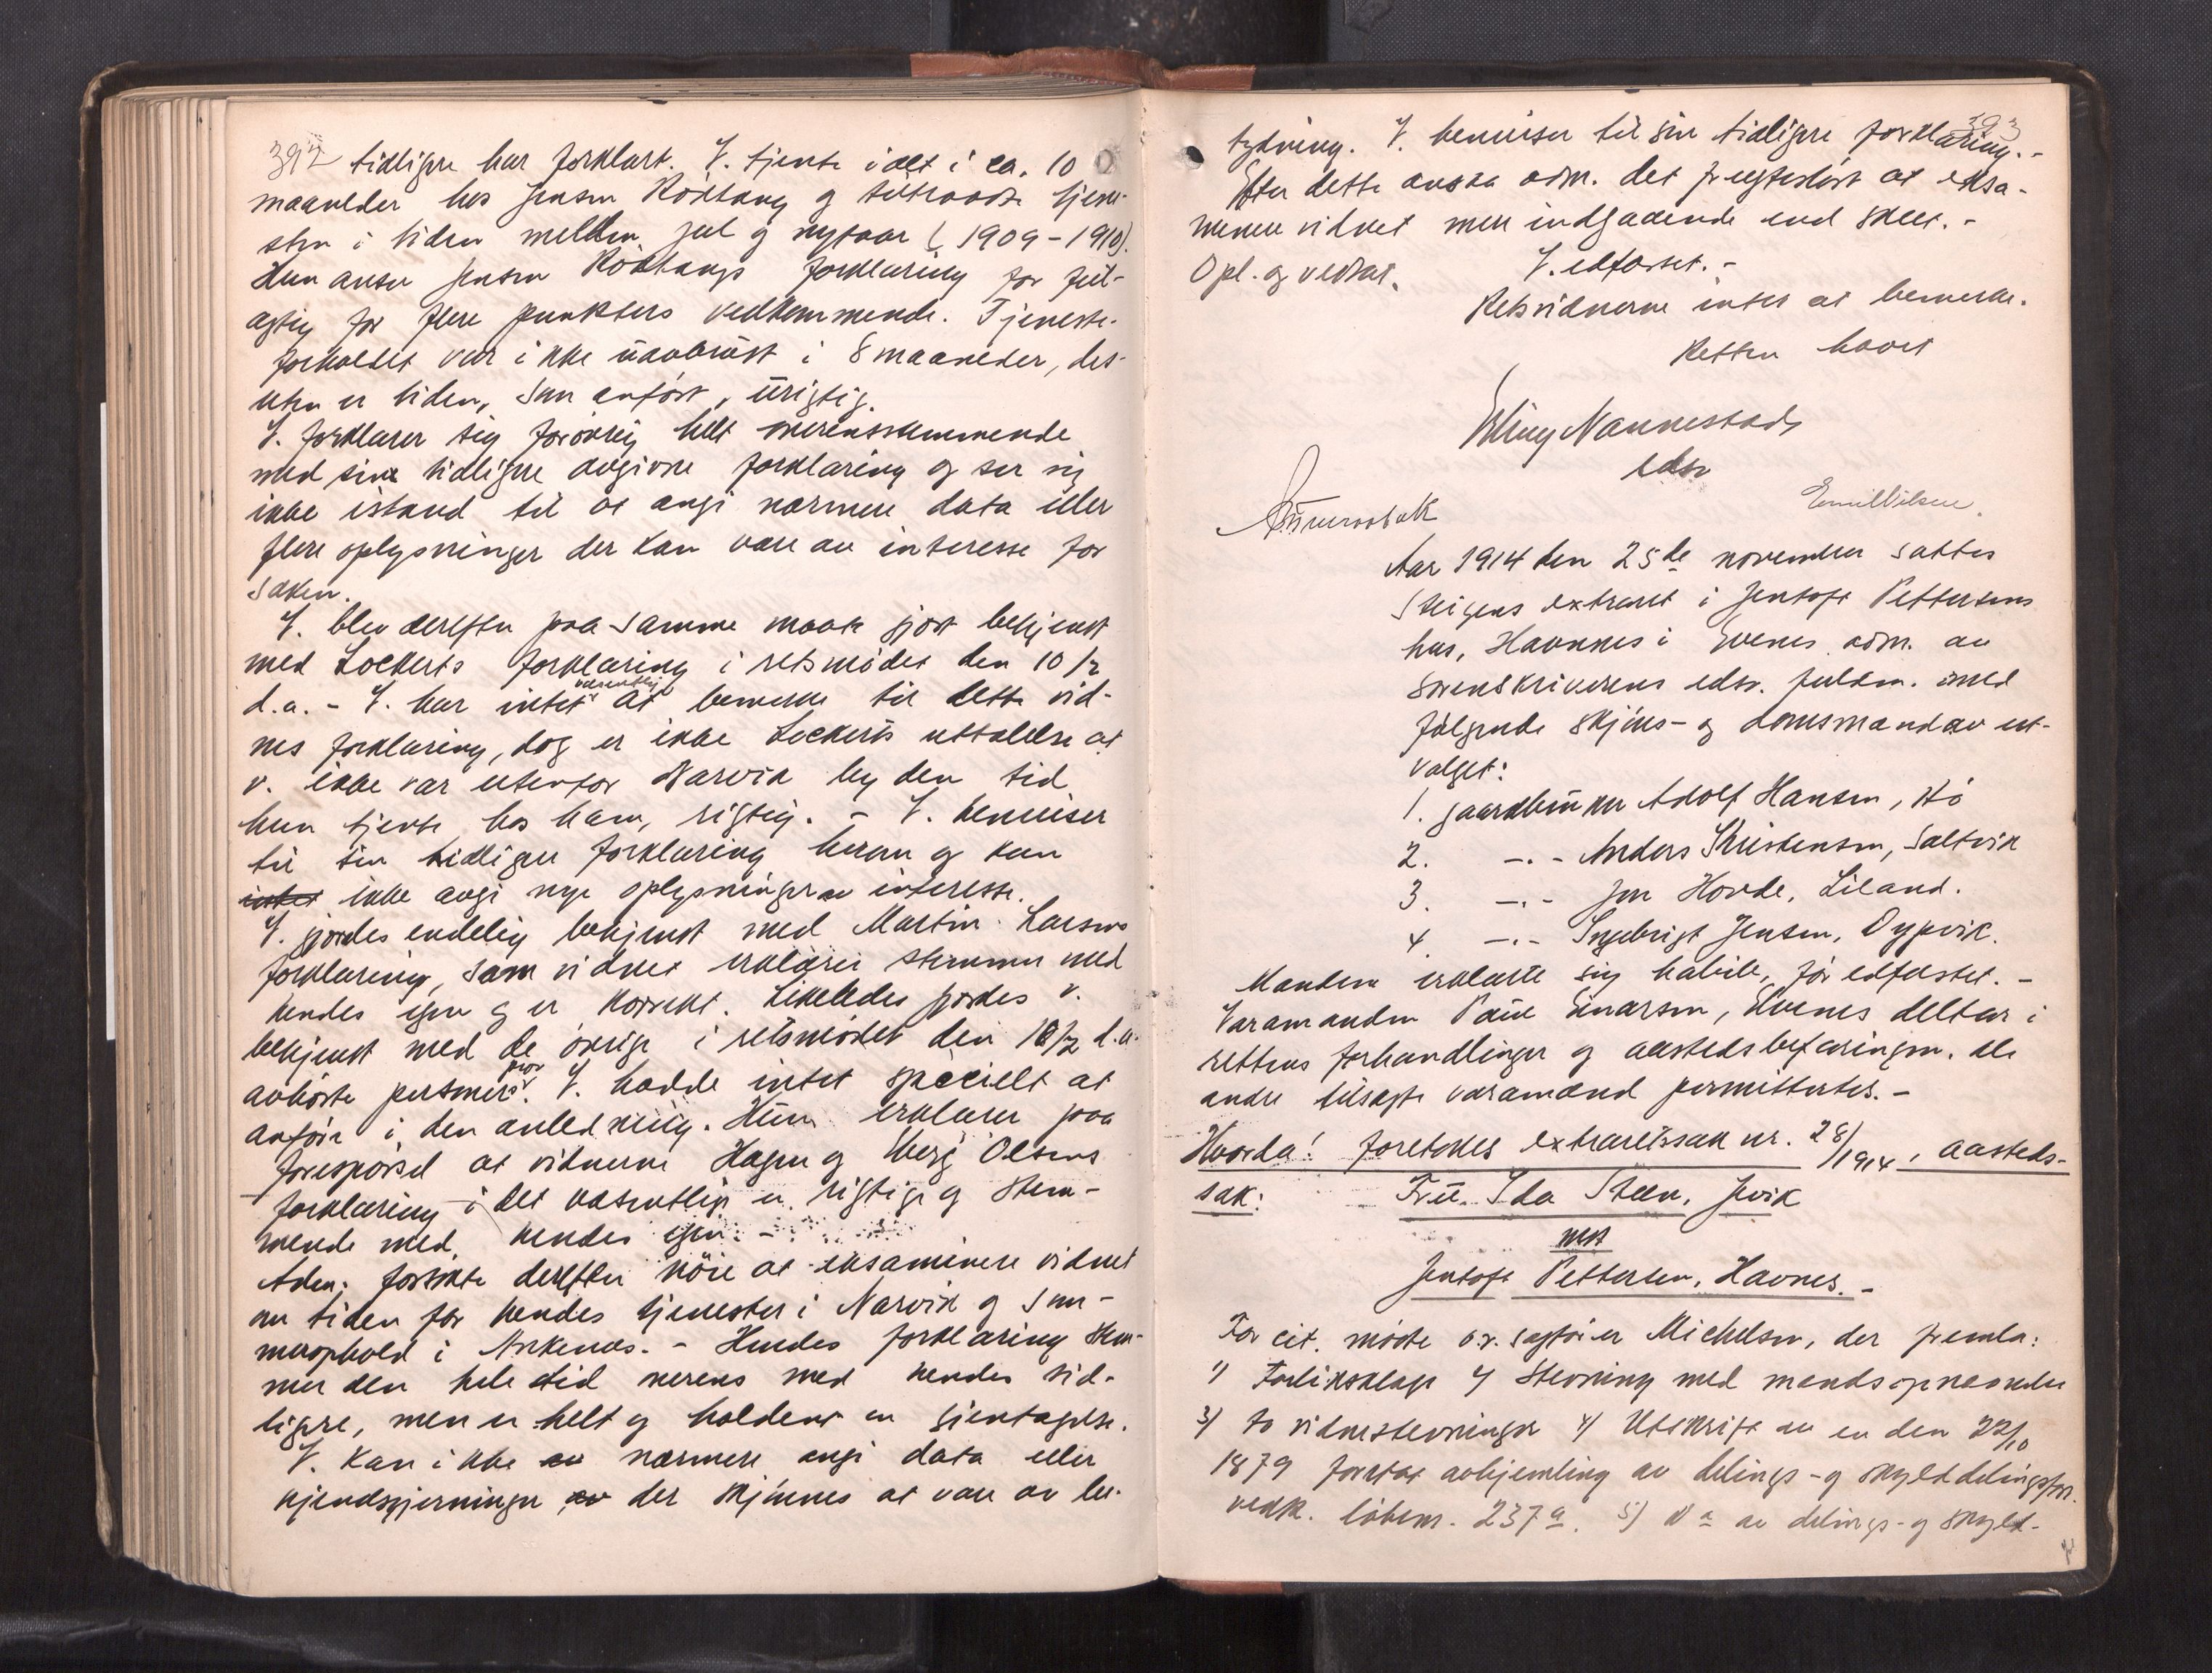 392 tidligere har forklart. V. tjente i alt i ca. 10
maaneder hos Jensen Rödtang og tiltraadte tjene-
sten i tiden mellem jul og nytaar (1909-1910).
Hun anser Jensen Rödtangs forklaring for feil-
agtig for flere punkters vedkommende. Tjeneste-
forholdet var ikke uavbrudt i 8 maaneder, des-
uten er tiden, som anfört, urigtig.
V. forklarer sig forövrig helt overensstemmende
med sin tidligere avgivne forklaring og ser sig
ikke istand til at angi nærmere data eller
flere oplysninger der kan være av interesse for
saken.
V. blev derefter paa samme maate gjort bekjendt
med Lockerts forklaring i retsmödet den 10/2
d.a. - V. har intet væsentlig at bemerke til dette vid-
nes forklaring, dog er ikke Lockerts uttalelse at
v. ikke var utenfor Narvik by den tid
hun tjente hos ham, rigtig. - V. henviser
til sin tidligere forklaring herom og kan
intet ikke avgi nye oplysninger av interesse.
V. gjordes endelig bekjendt med Martin Larsens
forklaring, som vidnet erklærer stemmer med
hendes egen og er korrekt. Likeledes gjordes v.
bekjendt med de övrige i retsmödet den 10/2 d.a.
avhörte personers prov. V. hadde intet specielt at
anföre i den anledning. Hun erklærer paa
forespörsel at vidnerne Hagen og Berg Olsens
forklaring i det væsentlige er rigtige og stem-
mende med hendes egen. -
Adm. forsökte derefter nöie at eksaminere vidnet
om tiden for hendes tjenester i Narvik og som-
merophold i Ankenes. - Hendes forklaring stem-
mer den hele tid overens med hendes tid-
ligere, men er helt og holdent en gjentagelse.
V. kan ikke av nærmere angi data eller
kjendsgjerninger av der skjönnes at være av be-
393
tydning. V. henviser til sin tidligere forklaring. -
Efter dette anser adm. det frugteslöst at eksa-
minere vidnet mer indgaaende end skeet. -
Opl. og vedtat. V. edfæstet. -
Retsvidnerne intet at bemerke.
Retten hævet
Erling Nannestad
edsv
Emil Nilsen
Aar 1914 den 25de november sattes
Steigens extraret i Jentoft Pettersens
hus, Havnnes i Evenes adm. av
sorenskriverens edsv. fuldm. med
fölgende skjöns- og domsmænd av ut-
valget:
1. gaardbruker Adolf Hansen, Stö
2. -"- Anders Kristensen, Saltvik
3. -"- Jon Hovde, Liland.
4. -"- Ingebrigt Jensen, Dypvik.
Mændene erklærte sig habile, för edfæstet. -
Varamanden Paul Einarsen, Evenes deltar i
rettens forhandlinger og aastedsbefaringen. De
andre tilsagte varamænd permittertes. -
Hvorda! foretokes extraretssak nr. 28/1914, aasteds-
sak: Fru Ida Steen, Jevik
mot
Jentoft Pettersen, Havnes. -
For cit. mötte o.r. sagförer Michelsen, der fremla:
1) Forliksklage 2) Stevning med mandsopnævnelse
3) to vidnestevninger 4) Utskrift av en den 22/10
1879 foretat avhjemling av delings- og skylddelingsforr.
vedk. löbenr. 237a. 5) Do av delings- og skyld-